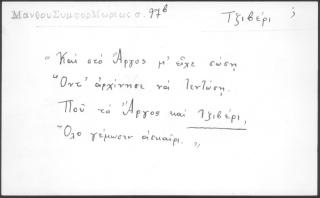 Μάνθου Συμφορ. Μωρέως σ. 97β
Τζιβέρι
"Καὶ στὸ Ἄργος μ' εἶχε σώση
Ὅντ' ἀρχίνησε νὰ τεντώση
Ποῦ τὸ Ἄργος καὶ Τζιβέρι,
Ὅλο γέμωσεν ἀσκαίρι. "